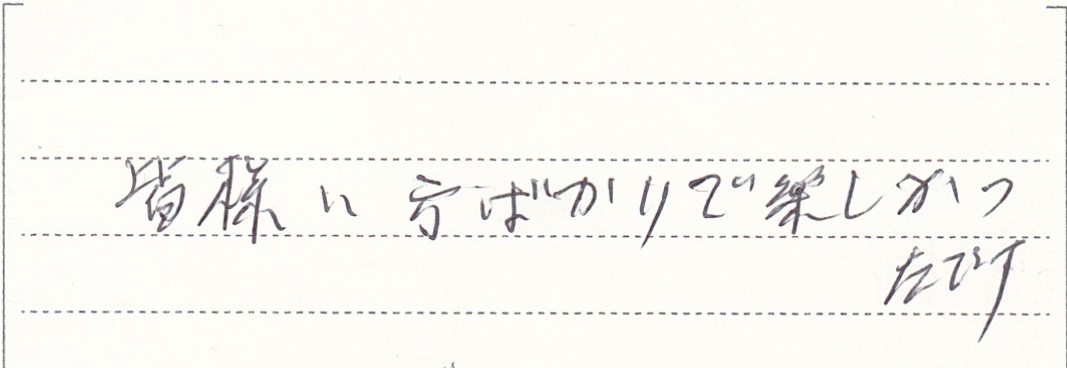 皆様い方ばかりで楽しかつ
たです